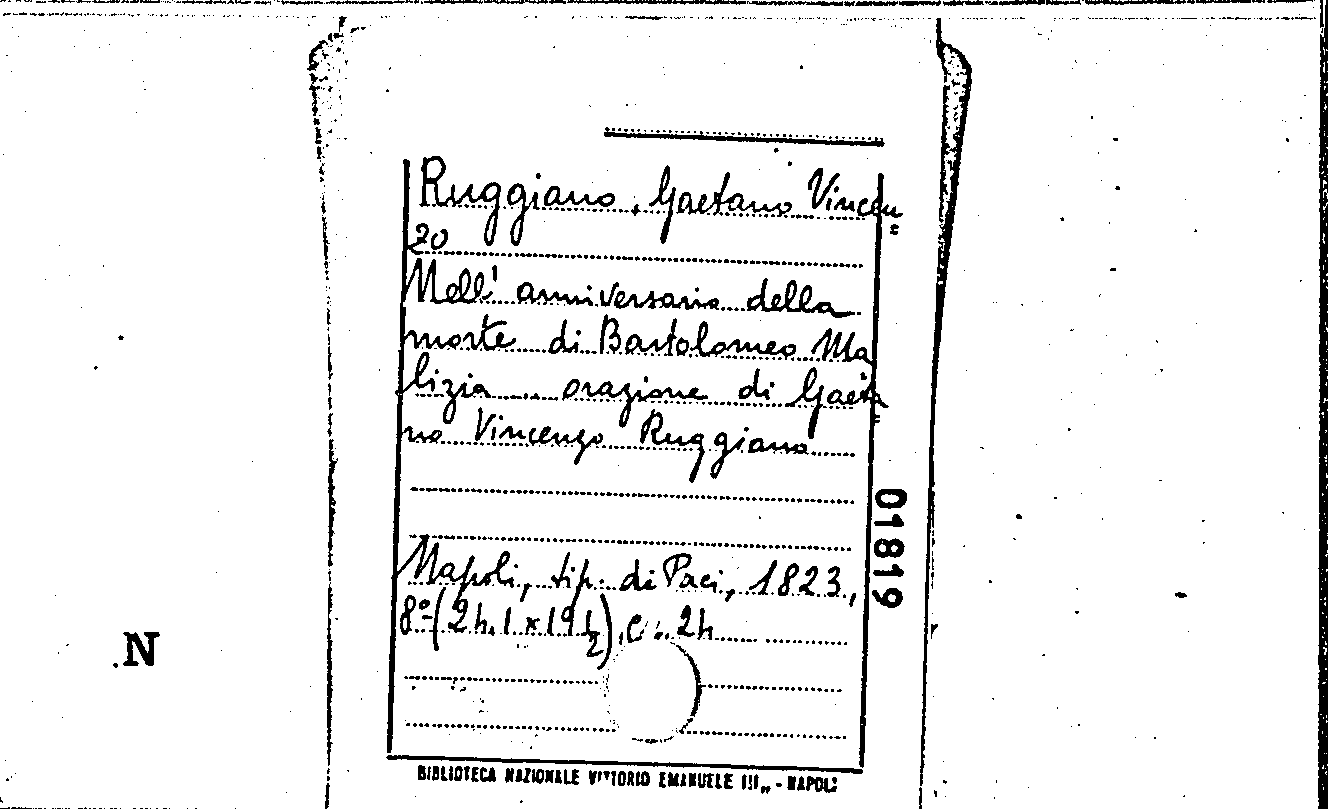 Ruggiano, Gaetano Vincen"
zo
Nell' anniversario della
morte di Bartolomeo Ma
lizia ... orazione di Gaeta"
no Vincenzo Ruggiano
Napoli, tip. di Paci, 1823,
8º (24.1 x 19 1/2), c. 24
01819
N
BIBLIOTECA NAZIONALE VITTORIO EMANUELE III„ - NAPOLI